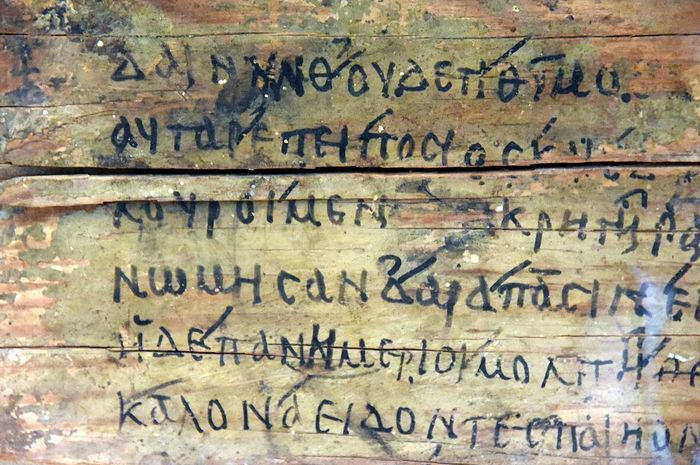 ΔΑΙΝΗΝΘΟΥΔΕΠΘΥΜΟ
ΑΥΤΑΡΕΠΕΙΠΟϹΙΟϹ
ΚΟΥΡΟΙΜΕΝ ΚΡΗΤΗΡΑ
ΝΩΜΗϹΑΝΔΑΡΑΠΑϹΙΝΕ
ΗΔΕΠΑΝΗΜΕΡΙΟΙΜΟΛΠΗΘΕ
ΚΑΛΟΝΑΕΙΔΟΝΤΕϹΠΑΙΗΟΝ